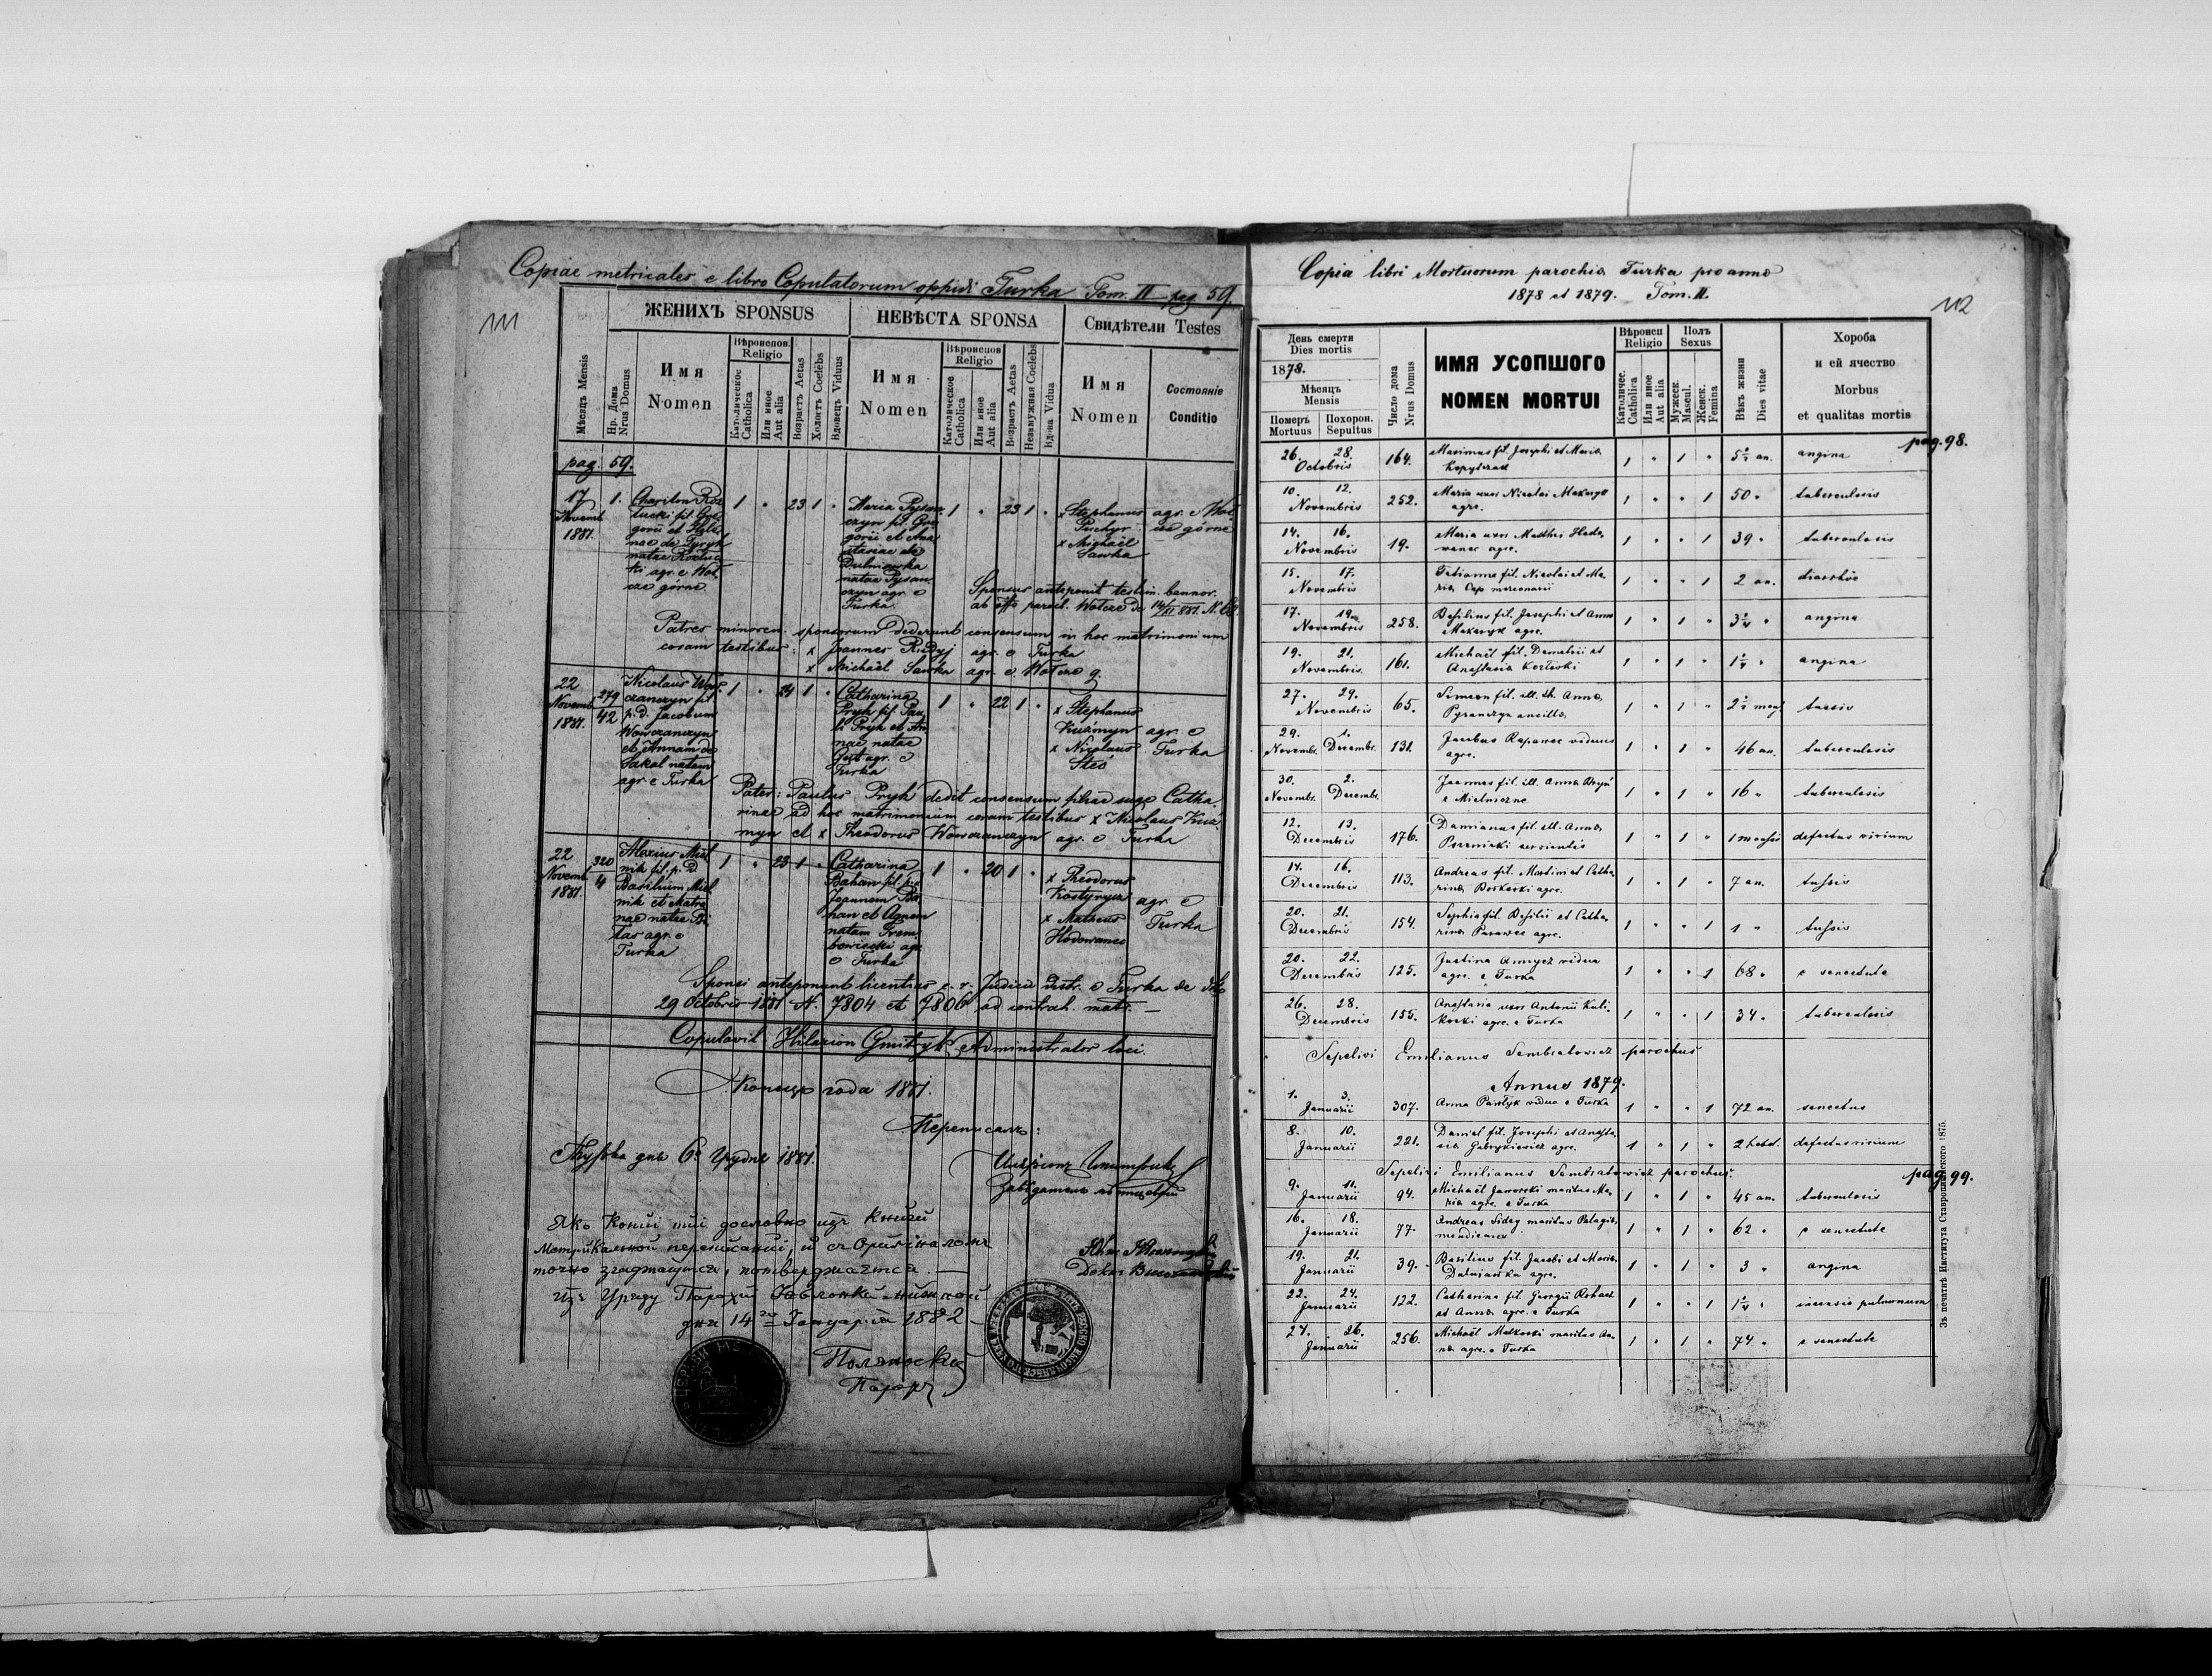 Copiae metricales e libro Copulatorum oppidi Turka Tom. II pag. 59.
111
ЖЕНИХЪ SPONSUS
НЕВѢСТА SPONSA
Свидѣтели Testes
Мѣсяцъ Mensis
Нр. Дома Nrus Domus
Имя Nomen
Вѣроиспов. Religio
Католическое Catholica
Или иное Aut alia
Возрастъ Aetas
Холостъ Coelebs
Вдовецъ Viduus
Имя Nomen
Вѣроиспов Religio
Католическое Catholica
Или иное Aut alia
Возрастъ Aetas
Незамужная Coelebs
Вдова Vidua
Имя Nomen
Состояніе Conditio
pag. 59.
17 Novemb. 1881.
1.
Chariton Roz
lucki fil. Gre
gorii et Hele
nae de Tyryk
natae Rozluc
ki agr. e Woł
cze górne
1 " 23 1 "
Maria Pysan
czyn fil. Gre
gorii et Ana
stasiae de
Dulniawka
natae Pysan
czyn agr. e
Turka.
1 " 23 1 "
x Stephanus
x Michaël
Sawka
agr. e Woł
cze górne
Sponsus anteponit testim. bannor.
ab off. paroch. Wołcze
Patres minoren. sponsorum dederunt consensum in hoc matrimonium
coram testibus: x Joannes Rudyj agr. e Turka
x Michaël Sawka agr. e Wołcze g.
22 Novemb. 1881.
279
42
Nicolaus Wow
czanczyn fil.
p. D. Jacobum
Wowczanczyn
et Annam de
Sakal natam
agr. e Turka
1 " 24 1 "
Catharina
Pryk fil. Pau
li Pryk et An
nae natae
agr. e
Turka
1 " 22 1 "
x Stephanus
Kuźmyn
x Nicolaus
Steć
agr. e
Turka
Pater: Paulus Pryk dedit consensum filiae suae Catha
rinae ad hoc matrimonium coram testibus x Nicolaus Kuź
myn et x Theodorus Wowczanczyn agr. e Turka
22 Novemb. 1881.
320
4
Alexius Miel
nik fil. p. D.
Basilium Miel
nik et Matro
nae natae Bi
las agr. e
Turka
1 " 23 1 "
Catharina
Bahan fil. p. D.
Joannem Ba
han et Agnem
natam Trem
bowiecki agr.
e Turka
1 " 20 1 "
x Theodorus
Kostyrycz
x Matheus
Hodowanec
agr. e
Turka
Sponsi anteponunt licentias c. r. Judicii distr. e Turka de dto
29 Octobris 1881 N. 7804 et 7806 ad contrah. matr. —
Copulavit Hilarion Gmitryk Administrator loci.
Конецъ года 1881.
Переписалъ:
Турка дня 6го Грудня 1881.
Яко копіи тіи дословно изъ книги
метрикальной переписаніи, и съ оригиналомъ
точно згаджаются, потверджается. —
Изъ Уряду Парохіи Яблонки нижной
дня 14го Януарія 1882
Copia libri Mortuorum parochia Turka pro anno
1878 et 1879. Tom. II.
112
День смерти Dies mortis
1878.
Мѣсяцъ Mensis
Померъ Mortuus
Похорон. Sepultus
Число дома Nrus Domus
ИМЯ УСОПШОГО
NOMEN MORTUI
Вѣроисп Religio
Католичес. Catholica
Или иное Aut alia
Полъ Sexus
Мужеск. Mascul.
Женск. Femina
Вѣкъ жизни Dies vitae
Хороба
и ей ячество
Morbus
et qualitas mortis
pag. 98.
26. 28. Octobris 164. Maximus fil. Josephi et Maria Kopytczak 1 " 1 " 5 ½ an. angina
10. 12. Novembris 252. Maria uxor Nicolai Makaryk agre. 1 " " 1 50 " tuberculosis
14. 16. Novembris 19. Maria uxor Mathei Hodowanec agre. 1 " " 1 39 " tuberculosis
15. 17. Novembris Tatianna fil. Nicolai et Maria Cap mercenarii 1 " " 1 2 an. diarrhöe
17. 19. Novembris 258. Basilius fil. Josephi et Anna Makaryk agre. 1 " 1 " angina
19. 21. Novembris 161. Michaël fil. Demetrii et Anastasia Kozłowski 1 " 1 " angina
27. 29. Novembris 65. Simeon fil. ill. th. Anna Pysanczyn ancilla 1 " 1 " 2 ½ mens tussis
29. Novembr. 1. Decembr. 131. Jacobus Rapawec viduus agre. 1 " 1 " 46 an. tuberculosis
30. Novembr. 2. Decembr. Joannes fil. ill. Anna Bryń e Mielniczne 1 " 1 " 16 " tuberculosis
12. 13. Decembris 176. Damianus fil. ill. Anna servientis 1 " 1 " 1 mensis defectus virium
14. 16. Decembris 113. Andreas fil. Martini et Catharina agre. 1 " 1 " 7 an. tussis
20. 21. Decembris 154. Sophia fil. Basilii et Catharina agre. 1 " " 1 1 " tussis
20. 22. Decembris 125. Justina Annycz vidua agre. e Turka 1 " " 1 68 " e senectute
26. 28. Decembris 155. Anastasia uxor Antonii Kulikowski agre. e Turka 1 " " 1 34 " tuberculosis
Sepelivi Emilianus Sembratowicz parochus
Annus 1879.
1. 3. Januarii 307. Anna Pawlyk vidua e Turka 1 " " 1 72 an. senectus
8. 10. Januarii 221. Daniel fil. Josephi et Anastasia Gabrykiewicz agre. 1 " 1 " 2 hebd. defectus virium
Sepelivi Emilianus Sembratowicz parochus.
pag. 99.
9. 11. Januarii 94. Michaël Jaworski maritus Maria agre. e Turka 1 " 1 " 45 an. tuberculosis
16. 18. Januarii 77. Andreas Sideg maritus Palagia mendicans 1 " 1 " 62 " e senectute
19. 21. Januarii 39. Basilius fil. Jacobi et Maria Dulniawka agre. 1 " 1 " 3 " angina
22. 24. Januarii 122. Catharina fil. Georgii Rohacz et Anna agre. e Turka 1 " " 1 pulmonum
24. 26. Januarii 256. Michaël maritus Anna agre. e Turka 1 " 1 " 74 " e senectute
Зъ печатнѣ Института Ставропигійского 1875.